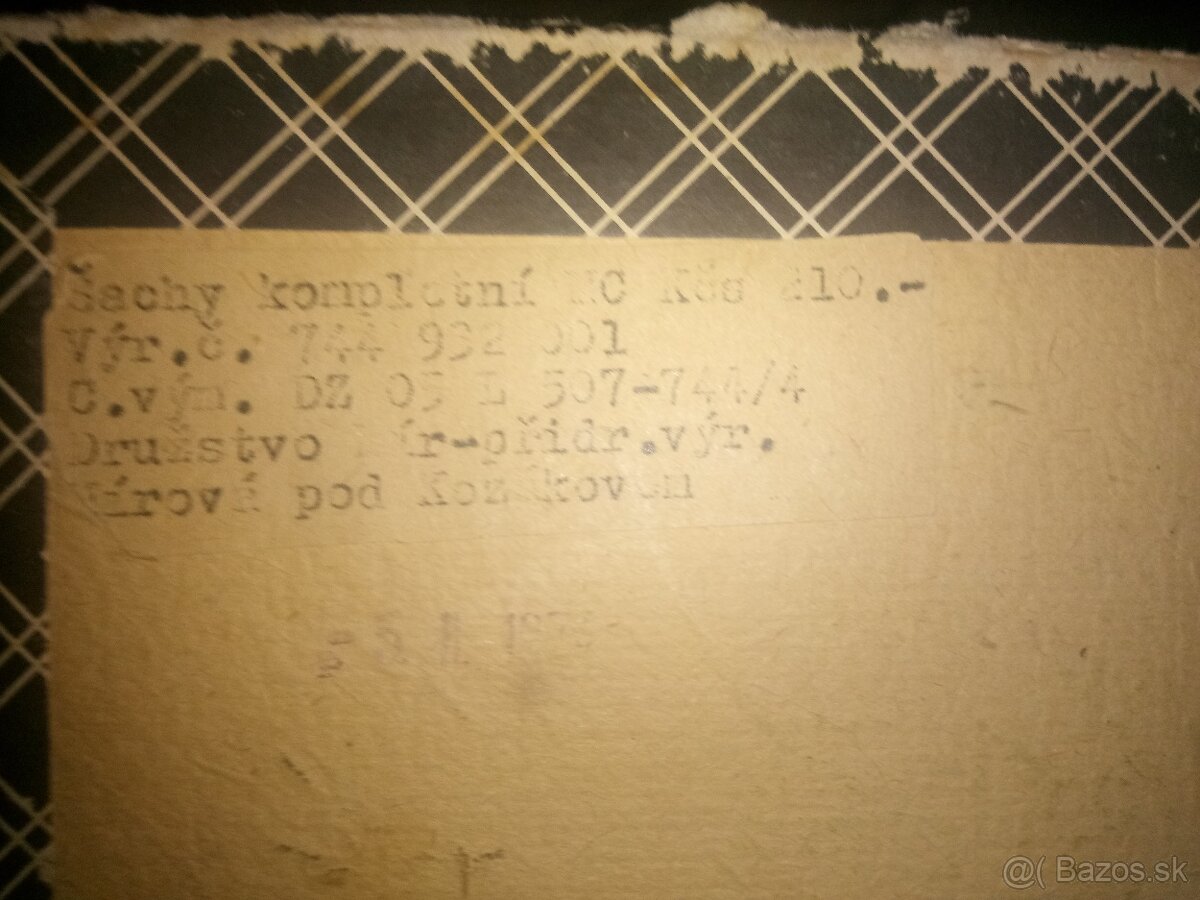 Šachy kompletní MC Kčs 210.-
Výr.č. 744 932 001
C.výn. DZ 05 L 507-744/4
Družstvo Mír-přidr.výr.
Mírová pod Kozákovem
@( Bazos.sk